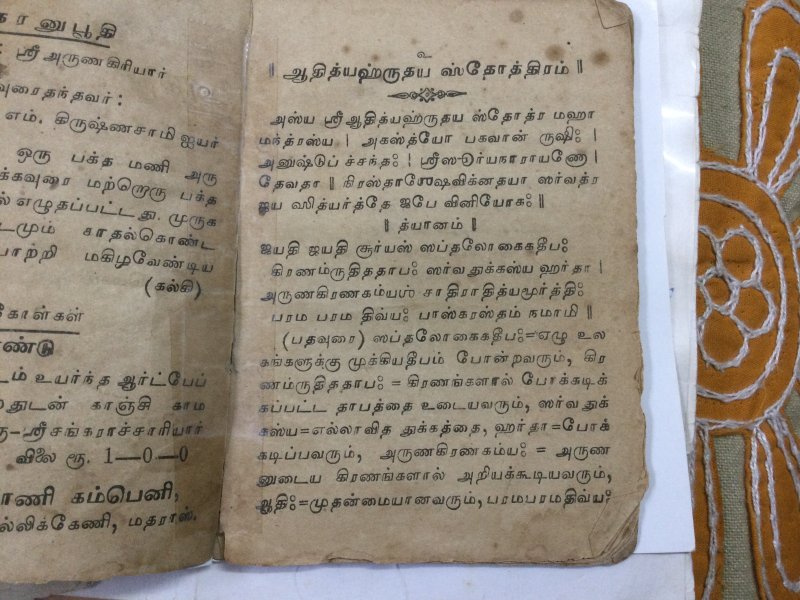 கரனுபூதி
ஸ்ரீ அருணகிரியார்
வுரைதந்தவர்:
எம். கிருஷ்ணசாமி ஐயர்
ஒரு பக்த மணி அரு
க்கவுரை மற்றொரு பக்த
ல் எழுதப்பட்டது. முருக
டமும் காதல்கொண்ட
பாற்றி மகிழவேண்டிய
(கல்கி)
கோள்கள்
ண்டு
டம் உயர்ந்த ஆர்ட்பேப்
துடன் காஞ்சி காம
ரு-ஸ்ரீசங்கராச்சாரியார்
விலை ரூ. 1—0—0
ாணி கம்பெனி,
ல்லிக்கேணி, மதராஸ்.
உ
॥ ஆதித்யஹ்ருதய ஸ்தோத்திரம் ॥
அஸ்ய ஸ்ரீ ஆதித்யஹ்ருதய ஸ்தோத்ர மஹா
மந்த்ரஸ்ய | அகஸ்த்யோ பகவான் ருஷிஃ |
அனுஷ்டுப் ச்சந்தஃ | ஸ்ரீஸூர்யநாராயணோ |
தேவதா ॥ நிரஸ்தாஶேஷவிக்னதயா ஸர்வத்ர
ஜய ஸித்யர்த்தே ஜபே வினியோகஃ ॥
॥ த்யானம் ॥
ஜயதி ஜயதி சூர்யஸ் ஸப்தலோகைகதீபஃ
கிரணம்ருதிததாபஃ ஸர்வதுக்கஸ்ய ஹர்தா |
அருணகிரணகம்யஶ் சாதிராதித்யமூர்த்திஃ
பரம பரம திவ்யஃ பாஸ்கரஸ்தம் நமாமி ॥
(பதவுரை) ஸப்தலோகைகதீபஃ=ஏழு உல
கங்களுக்கு முக்கியதீபம் போன்றவரும், கிர
ணம்ருதிததாபஃ = கிரணங்களால் போக்கடிக்
கப்பட்ட தாபத்தை உடையவரும், ஸர்வ துக்
கஸ்ய=எல்லாவித துக்கத்தை, ஹர்தா=போக்
கடிப்பவரும், அருணகிரணகம்யஃ = அருண
னுடைய கிரணங்களால் அறியக்கூடியவரும்,
ஆதிஃ=முதன்மையானவரும், பரமபரமதிவ்யஃ